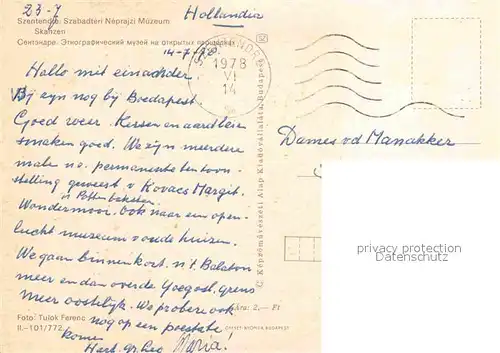 23-7
Hollandia
Szentendre. Szabadtéri Néprajzi Múzeum
Skanzen
Сентэндре. Этнографический музей на открытых площадках
14-7-78
SZENTENDRE
1978
VI
14
Hallo mit einachder.
Wij zyn nog bij Boedapest.
Goed weer. Kersen en aardbeien
smaken goed. We zijn meerdere
male n.
permanente ten toon-
stelling geweest v Kovacs Margit.
'n Pottenbakster.
Wondermooi. Ook naar een open-
lucht museum v oude huizen.
We gaan binnenkort n.'t Balaton
meer en dan over de Joegosl. grens
meer oostelijk. We proberen ook
nog op een poestate
komen
Hart. gr. Leo Maria!
Dames vd Manakker
© Képzőművészeti Alap Kiadóvállalata, Budapest
Ára: 2,— Ft
Foto: Tulok Ferenc
II.-101/772
OFFSET-NYOMDA BUDAPEST
privacy protection
Datenschutz